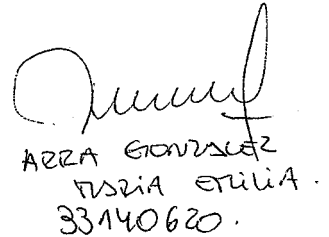 ARRA GONZALEZ
MARIA EMILIA.
33140620.